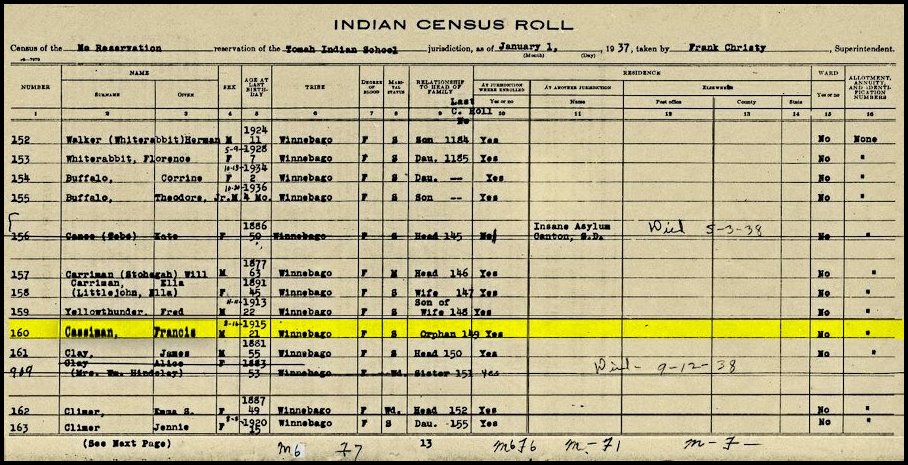 INDIAN CENSUS ROLL
Census of the No Reservation reservation of the Tomah Indian School jurisdiction, as of January 1, 1937, taken by Frank Christy, Superintendent.
(Month) (Day)
NUMBER NAME SEX AGE AT LAST BIRTHDAY TRIBE DEGREE OF BLOOD MARITAL STATUS RELATIONSHIP TO HEAD OF FAMILY RESIDENCE WARD ALLOTMENT, ANNUITY, AND IDENTIFICATION NUMBERS
SURNAME GIVEN Last C. Roll No AT JURISDICTION WHERE ENROLLED AT ANOTHER JURISDICTION ELSEWHERE
Yes or no Name Post office County State Yes or no
1 2 3 4 5 6 7 8 9 10 11 12 13 14 15 16
1924
152 Walker (Whiterabbit)Herman M 11 Winnebago F S Son 1184 Yes No None
5-9-1928
153 Whiterabbit, Florence F 7 Winnebago F S Dau. 1185 Yes No "
1934
154 Buffalo, Corrine F 2 Winnebago F S Dau. -- Yes No "
1936
155 Buffalo, Theodore, Jr. M 4 Mo. Winnebago F S Son -- Yes No "
1886 Insane Asylum
156 Kate F 50 Winnebago F S Head 145 No Canton, S.D. Died 5-3-38 No "
1877
157 Carriman (Stohegah) Will M 63 Winnebago F M Head 146 Yes No "
Carriman, Ella 1891
158 (Littlejohn, Ella) F 45 Winnebago F S Wife 147 Yes No "
11-11-1913 Son of
159 Yellowthunder, Fred M 22 Winnebago F S Wife 148 Yes No "
1915
160 Cassiman, Francis M 21 Winnebago F S Orphan 149 Yes No "
1881
161 Clay, James M 55 Winnebago F S Head 150 Yes No "
Clay Alice F 1883
(Mrs. Wm. Hindsley) 53 Winnebago F Wd. Sister 151 Yes Died - 9-12-38
1887
162 Climer, Emma S. F 49 Winnebago F Wd. Head 152 Yes No "
1920
163 Climer Jennie F 15 Winnebago F S Dau. 155 Yes No "
(See Next Page) 13